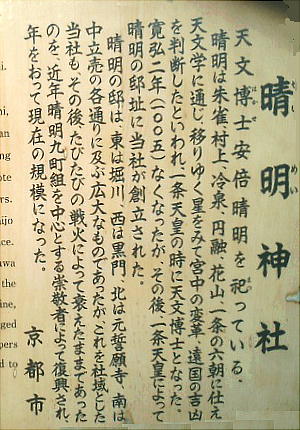 晴明神社
天文博士安倍晴明を祀っている。
晴明は朱雀、村上、冷泉、円融、花山、一条の六朝に仕え
天文学に通じ、移りゆく星をみて宮中の変革、遠国の吉凶
を判断したといわれ一条天皇の時に天文博士となった。
寛弘二年(一〇〇五)なくなったが、その後一条天皇によって
晴明の邸址に当社が創立された。
晴明の邸は、東は堀川、西は黒門、北は元誓願寺、南は
中立売の各通りに及ぶ広大なものであったが、これを社域とした
当社も、その後、たびたびの戦火によって衰えたままであった
のを、近年晴明九町組を中心とする崇敬者によって復興され、
年をおって現在の規模になった。
京都市